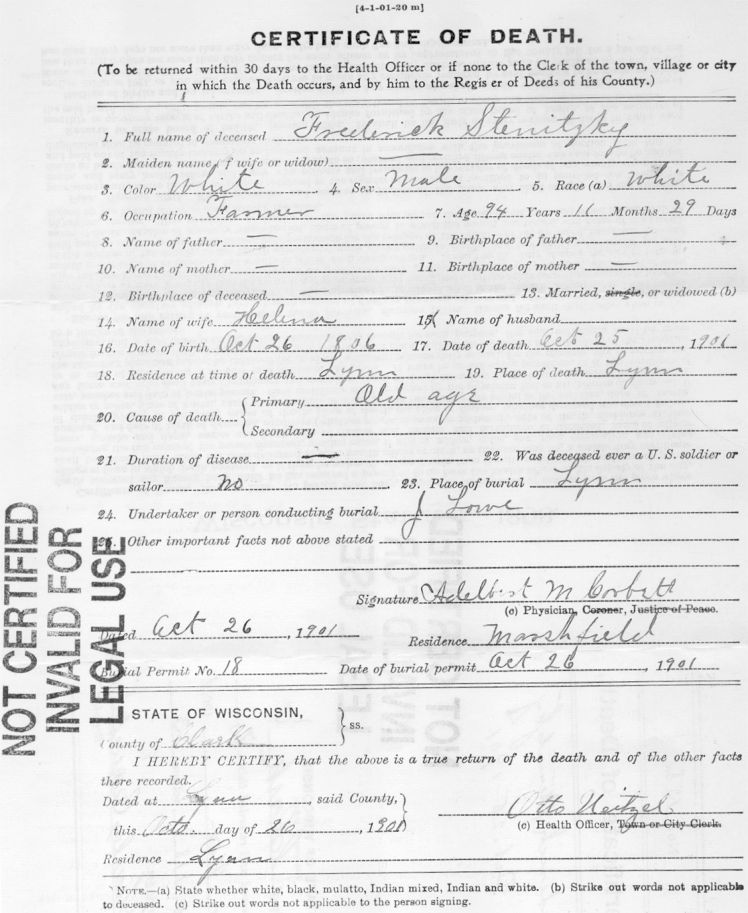 [4-1-01-20 m]
CERTIFICATE OF DEATH.
(To be returned within 30 days to the Health Officer or if none to the Clerk of the town, village or city
in which the Death occurs, and by him to the Regis er of Deeds of his County.)
1. Full name of deceased Frederick Stenitzky
2. Maiden name (f wife or widow) —
3. Color White 4. Sex Male 5. Race (a) White
6. Occupation Farmer 7. Age 94 Years 11 Months 29 Days
8. Name of father — 9. Birthplace of father —
10. Name of mother — 11. Birthplace of mother —
12. Birthplace of deceased — 13. Married, single, or widowed (b)
14. Name of wife Helena 15. Name of husband
16. Date of birth Oct 26 1806 17. Date of death Oct 25, 1901
18. Residence at time of death Lynn 19. Place of death Lynn
20. Cause of death { Primary Old age
Secondary
21. Duration of disease — 22. Was deceased ever a U. S. soldier or
sailor no 23. Place of burial Lynn
24. Undertaker or person conducting burial J Lowe
25. Other important facts not above stated
Signature Adelbert M Corbett
(c) Physician, Coroner, Justice of Peace.
Dated Oct 26, 1901 Residence Marshfield
Burial Permit No. 18 Date of burial permit Oct 26, 1901
NOT CERTIFIED
INVALID FOR
LEGAL USE
STATE OF WISCONSIN, } ss.
County of Clark
I HEREBY CERTIFY, that the above is a true return of the death and of the other facts
there recorded.
Dated at Lynn, said County, }
this Octo. day of 26, 1901 Otto Neitzel
(c) Health Officer, Town or City Clerk.
Residence Lynn
NOTE.—(a) State whether white, black, mulatto, Indian mixed, Indian and white. (b) Strike out words not applicable
to deceased. (c) Strike out words not applicable to the person signing.